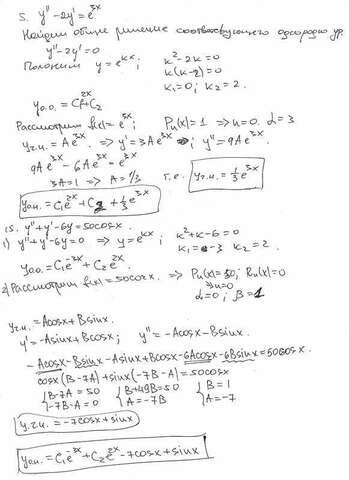 5. y'' - 2y' = e^{3x}
Найдём общее решение соответствующего однородного ур.
y'' - 2y' = 0
Положим y = e^{kx}; k² - 2k = 0
k(k-2) = 0
k₁ = 0; k₂ = 2.
y_{o.o.} = C₁e^{2x} + C₂
Рассмотрим f(x) = e^{3x}; Pₙ(x) = 1 ⇒ n = 0. α = 3
y_{ч.н.} = Ae^{3x} ⇒ y' = 3Ae^{3x}; y'' = 9Ae^{3x}
9Ae^{3x} - 6Ae^{3x} = e^{3x}
3A = 1 ⇒ A = 1/3 т.е. y_{ч.н.} = 1/3 e^{3x}
y_{он.} = C₁e^{2x} + C₂ + 1/3 e^{3x}
15. y'' + y' - 6y = 50cosx.
1) y'' + y' - 6y = 0 ⇒ y = e^{kx}; k² + k - 6 = 0
k₁ = -3 k₂ = 2.
y_{o.o.} = C₁e^{-3x} + C₂e^{2x}.
2) Рассмотрим f(x) = 50cosx. ⇒ Pₙ(x) = 50; Rₙ(x) = 0
⇒ n = 0
α = 0; β = 1
y_{ч.н.} = Acosx + Bsinx.
y' = -Asinx + Bcosx; y'' = -Acosx - Bsinx.
-Acosx - Bsinx - Asinx + Bcosx - 6Acosx - 6Bsinx = 50cosx.
cosx(B - 7A) + sinx(-7B - A) = 50cosx
{B - 7A = 50 {B + 49B = 50 {B = 1
{-7B - A = 0 {A = -7B {A = -7
y_{ч.н.} = -7cosx + sinx
y_{он.} = C₁e^{-3x} + C₂e^{2x} - 7cosx + sinx